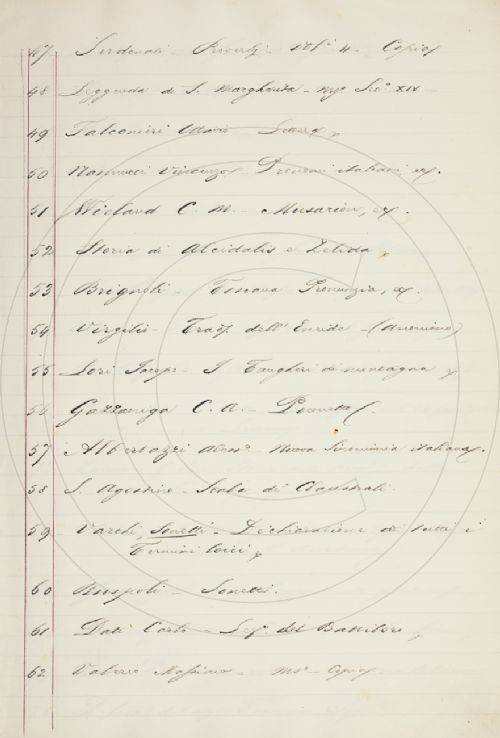 47 Serdonati - Proverbj - Vol.e 4 - Copia
48 Leggenda di S. Margherita - Ms. Sec.o XIV
49 Falconieri Ottavio - Lettere
50 Nannucci Vincenzo - italiani
51 Wieland C. M. - Musarion,
52 Storia di Alcidalis e Zelida
53 Brignoli - Toscana Pronunzia,
54 Virgilio - Trad. dell' Eneide - (Anonimo)
55 Lori Jacopo - I Funghi di montagna
56 Gazzaniga C. A. -
57 Albertazzi - Nuova Sinonimia italiana
58 S. Agostino - Scala di Claustrali
59 Varchi, Sonetti - Dichiarazione di tutti i
Termini loici
60 Ruspoli - Sonetti.
61 Dati Carlo - del Battiloro
62 Valerio Massimo - Ms. - Copia